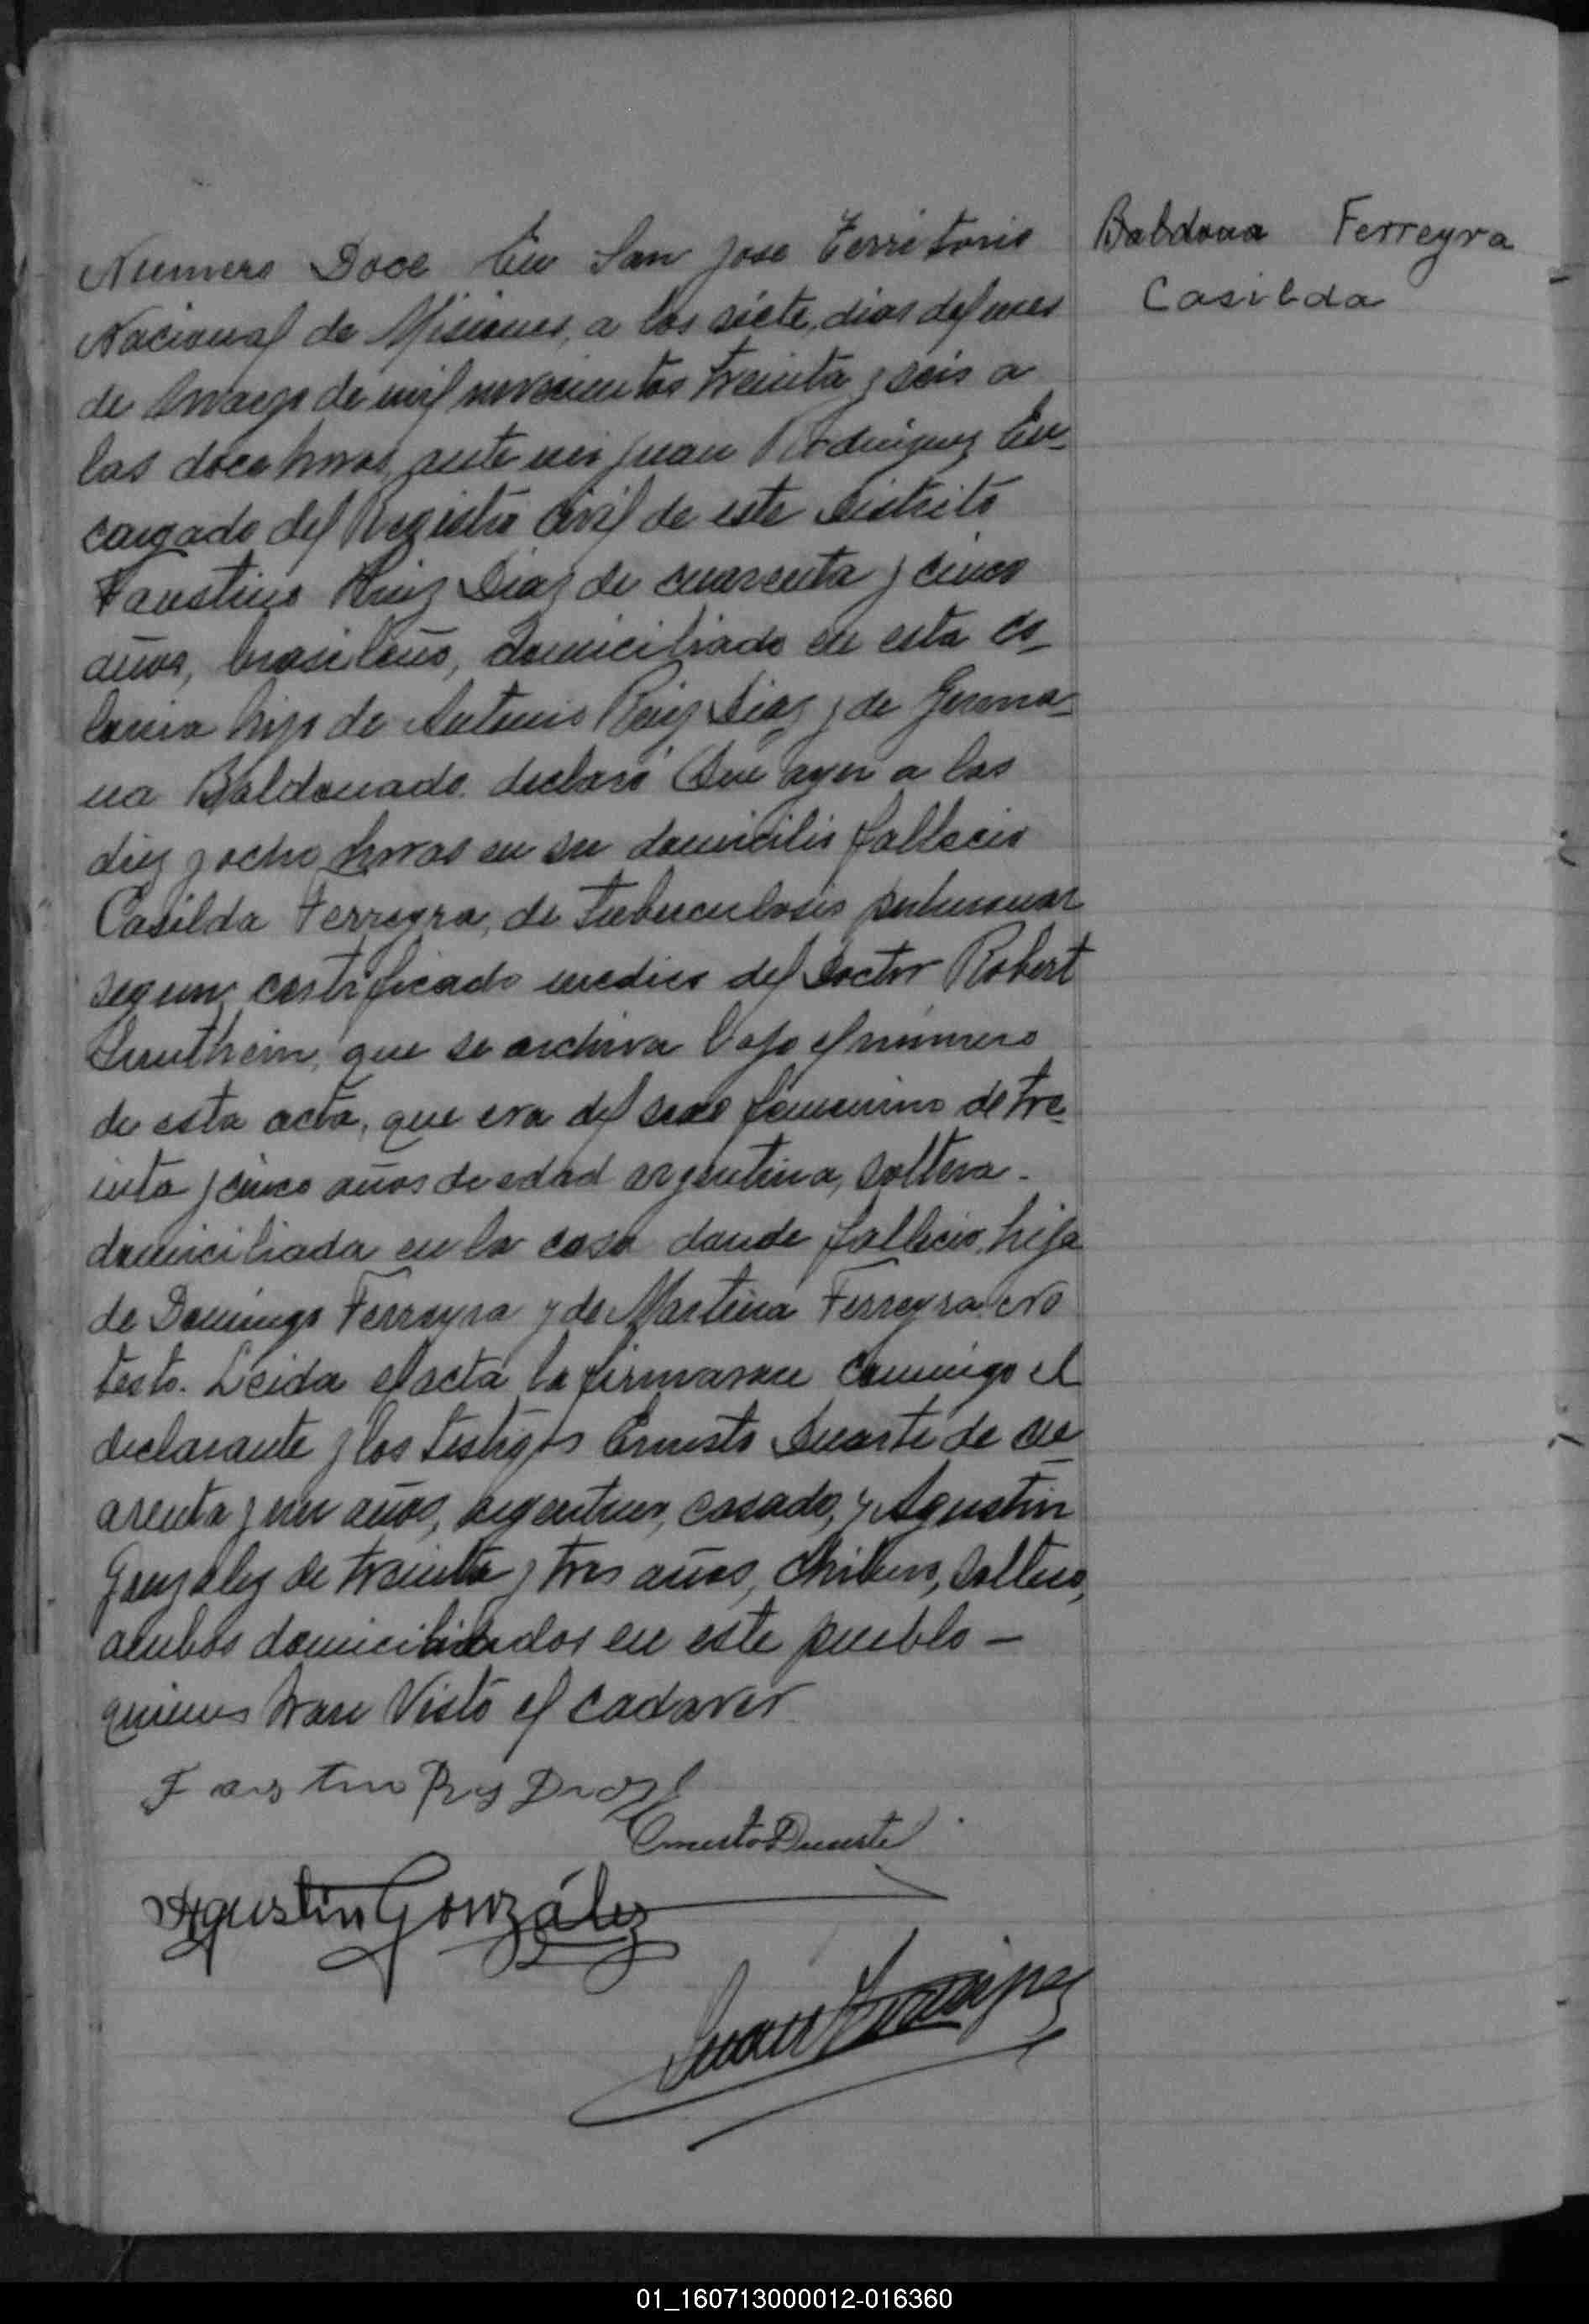 Baldona Ferreyra
Casilda
Numero Doce En San Jose Territorio
Nacional de Misiones, a los siete, dias del mes
de Marzo de mil novecientos treinta y seis a
las doce horas, ante mi Juan Rodriguez En-
cargado del Registro Civil de este Distrito
Faustino Ruiz Diaz de cuarenta y cinco
años, brasileño, domiciliado en esta co-
lonia hijo de Antonio Ruiz Diaz y de Germa-
na Baldonado. declaró Que ayer a las
diez y ocho horas en su domicilio fallecio
Casilda Ferreyra, de tuberculosis pulmonar
segun certificado medico del Doctor Robert
que se archiva bajo el número
de esta acta, que era del sexo femenino de tre-
inta y cinco años de edad argentina, soltera-
domiciliada en la casa donde fallecio, hija
de Domingo Ferreyra y de Martina Ferreyra. No
testo. Leida el acta la firmaron conmigo el
declarante y los testigos Ernesto Duarte de cu-
arenta y un años, argentino, casado, y Agustin
Gonzalez de treinta y tres años, chileno, soltero,
ambos domiciliados en este pueblo -
quienes han Visto el cadaver
Faustino Ruz Diaz
Ernesto Duarte
Agustin González
Juan Rodriguez
01_160713000012-016360